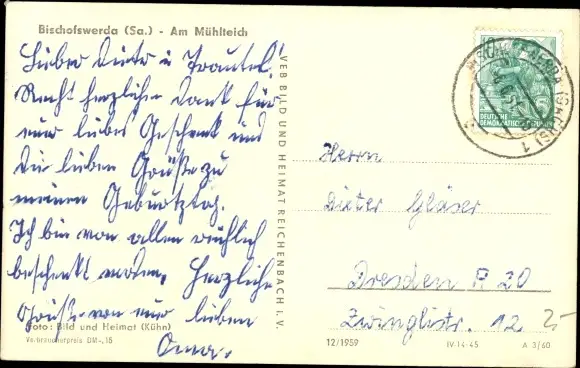 Bischofswerda (Sa.) - Am Mühlteich
Lieber Dieter u Trautel!
Recht herzlichen Dank für
euer liebes Geschenk und
die lieben Grüße zu
meinem Geburtstag.
Ich bin von allen reichlich
beschenkt worden. Herzliche
Grüße von eurer lieben
Oma.
Foto: Bild und Heimat (Kühn)
Verbraucherpreis DM -,15
VEB BILD UND HEIMAT REICHENBACH I. V.
10
DEUTSCHE
DEMOKRATISCHE
BISCHOFSWERDA (SACHS) 1
Herrn
Dieter Gläser
Dresden A 20
Zwinglistr. 12
25
12/1959 IV-14-45 A 3/60